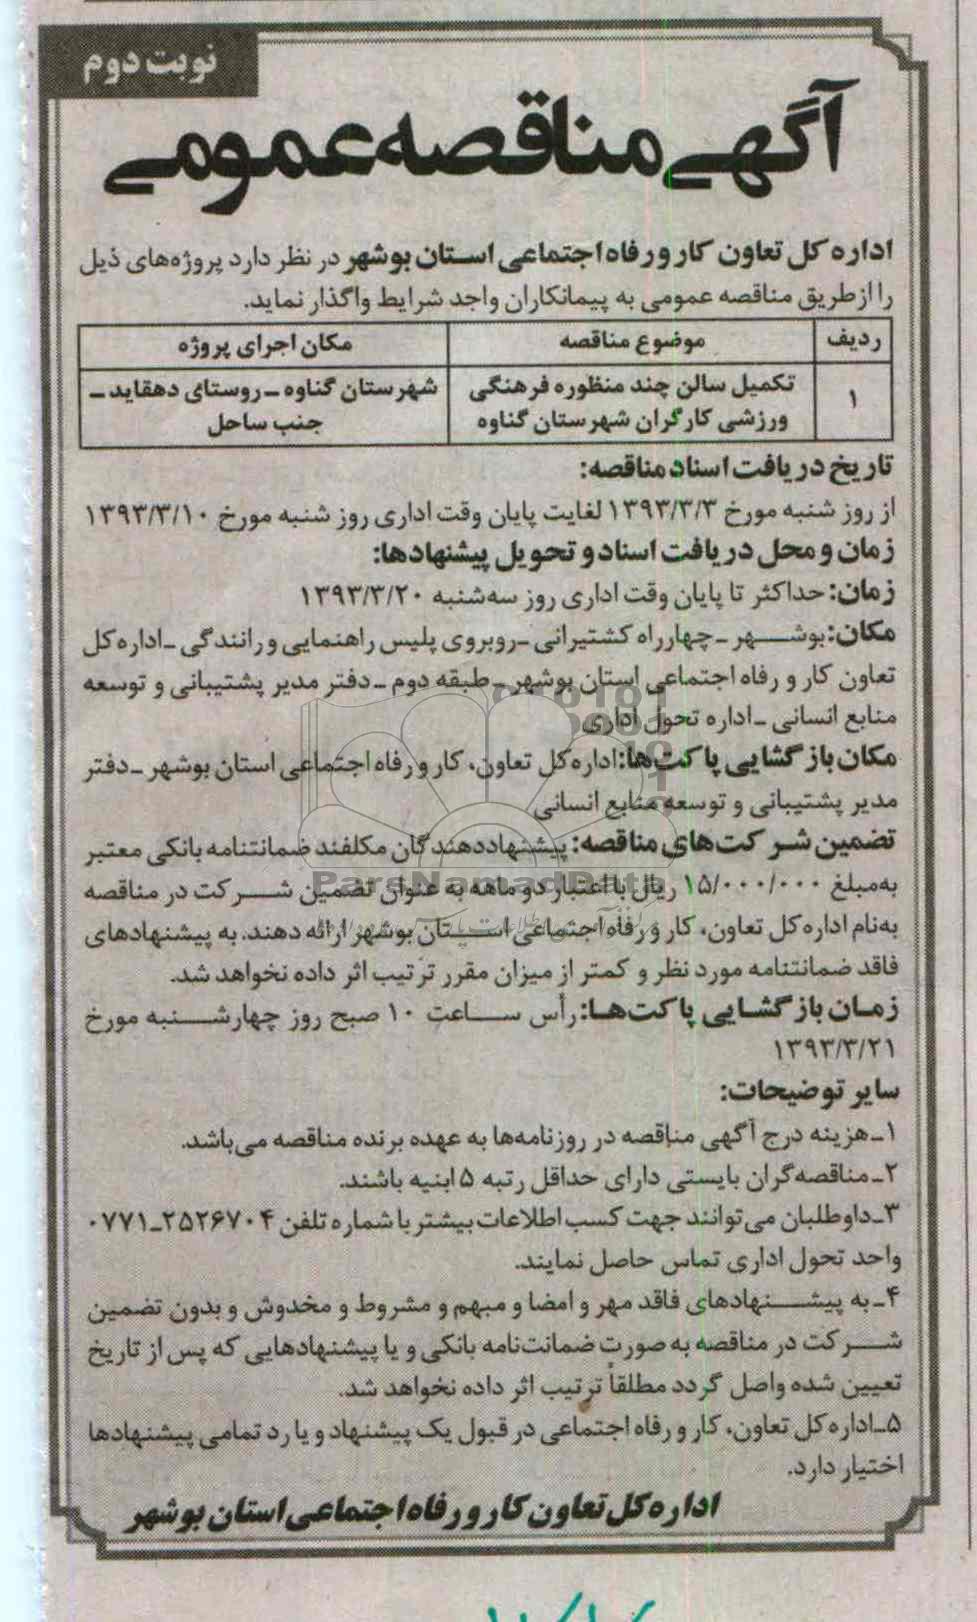 نوبت دوم
آگهی مناقصه عمومی
اداره کل تعاون کار و رفاه اجتماعی استان بوشهر در نظر دارد پروژه‌های ذیل
را از طریق مناقصه عمومی به پیمانکاران واجد شرایط واگذار نماید.
ردیف موضوع مناقصه مکان اجرای پروژه
۱ تکمیل سالن چند منظوره فرهنگی ورزشی کارگران شهرستان گناوه شهرستان گناوه ـ روستای دهقاید ـ جنب ساحل
تاریخ دریافت اسناد مناقصه:
از روز شنبه مورخ ۱۳۹۳/۳/۳ لغایت پایان وقت اداری روز شنبه مورخ ۱۳۹۳/۳/۱۰
زمان و محل دریافت اسناد و تحویل پیشنهادها:
زمان: حداکثر تا پایان وقت اداری روز سه‌شنبه ۱۳۹۳/۳/۲۰
مکان: بوشهر ـ چهارراه کشتیرانی ـ روبروی پلیس راهنمایی و رانندگی ـ اداره کل
تعاون کار و رفاه اجتماعی استان بوشهر ـ طبقه دوم ـ دفتر مدیر پشتیبانی و توسعه
منابع انسانی ـ اداره تحول اداری
مکان بازگشایی پاکت‌ها: اداره کل تعاون، کار و رفاه اجتماعی استان بوشهر ـ دفتر
مدیر پشتیبانی و توسعه منابع انسانی
تضمین شرکت‌های مناقصه: پیشنهاددهندگان مکلفند ضمانتنامه بانکی معتبر
به‌مبلغ ۱۵/۰۰۰/۰۰۰ ریال با اعتبار دو ماهه به عنوان تضمین شرکت در مناقصه
به‌نام اداره کل تعاون، کار و رفاه اجتماعی استان بوشهر ارائه دهند. به پیشنهادهای
فاقد ضمانتنامه مورد نظر و کمتر از میزان مقرر ترتیب اثر داده نخواهد شد.
زمان بازگشایی پاکت‌ها: رأس ساعت ۱۰ صبح روز چهارشنبه مورخ
۱۳۹۳/۳/۲۱
سایر توضیحات:
۱ـ هزینه درج آگهی مناقصه در روزنامه‌ها به عهده برنده مناقصه می‌باشد.
۲ـ مناقصه‌گران بایستی دارای حداقل رتبه ۵ ابنیه باشند.
۳ـ داوطلبان می‌توانند جهت کسب اطلاعات بیشتر با شماره تلفن ۲۵۲۶۷۰۴ـ۰۷۷۱
واحد تحول اداری تماس حاصل نمایند.
۴ـ به پیشنهادهای فاقد مهر و امضا و مبهم و مشروط و مخدوش و بدون تضمین
شرکت در مناقصه به صورت ضمانت‌نامه بانکی و یا پیشنهادهایی که پس از تاریخ
تعیین شده واصل گردد مطلقاً ترتیب اثر داده نخواهد شد.
۵ـ اداره کل تعاون، کار و رفاه اجتماعی در قبول یک پیشنهاد و یا رد تمامی پیشنهادها
اختیار دارد.
اداره کل تعاون کار و رفاه اجتماعی استان بوشهر
ParsNamadData